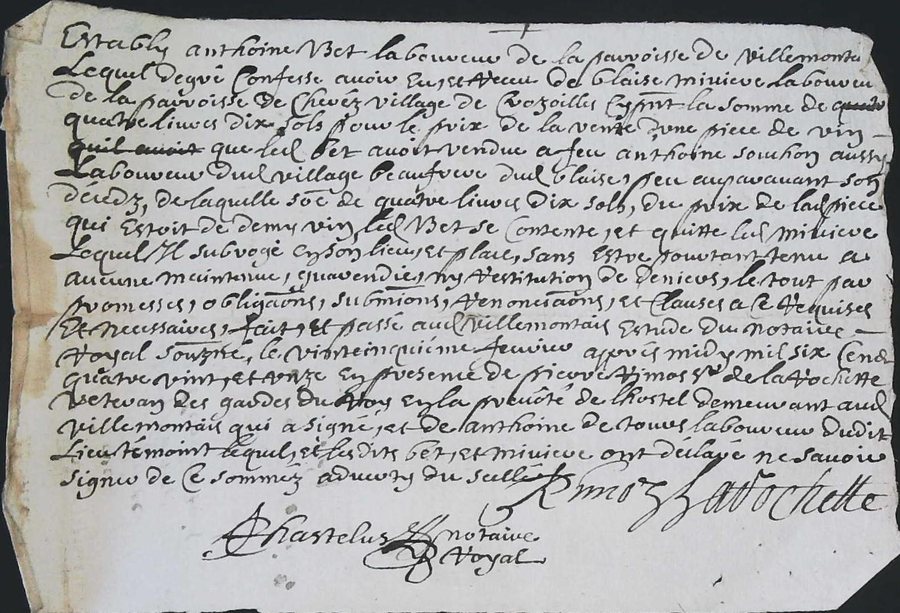 Estably anthoine Bet laboureur de la parroisse de villemonté
Lequel de gré Confesse avoir Eu, et receu de blaise miniere laboureur
de la parroisse de Cheréz village de Crozoilles Cy pnt la somme de
quatre livres dix sols pour le prix de la vente dune piece de vin
quil avoit que led bet avoit vendue a feu anthoine souchon aussy
Laboureur dud village beaufrere dud blaise, peu auparavant son
décedz, de laquille soe de quatre livres dix sols, du prix de lad piece
qui Estoit de demy vin, led Bet se Contente, et quitte led miniere
Lequel Il subrogé en son lieu, et place, sans Estre pourtant tenu a
aucune maintenue, guarendie, ny restitution de deniers, le tout par
promesses, obligaons, submions, renonciaons, et Clauses a Ce requises
Et necessaires, fait, et passé aud villemontais Estude du notaire
royal soubzné, le vinteinquiéme fevrier apprés midy mil six Cend
quatre vint, et unze En presence de pierre rimoz sr de la rochette
veteran des gardes du roy En la prevôté de lhostel demeurant aud
villemontais qui a signé, et de anthoine de tours laboureur dudit
Lieu témoint lequel, et lesdits bet, et miniere ont déclaré ne savoir
signer de Ce sommêz adverty du scellé
Rimoz Larochette
Chastelus notaire
royal